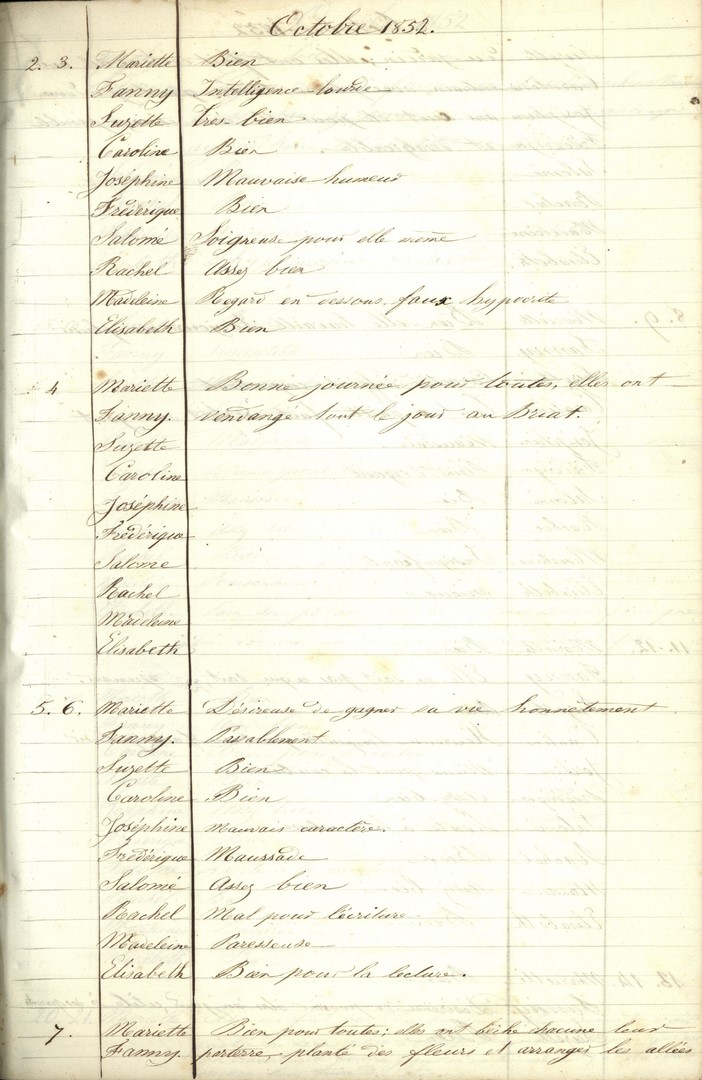 Octobre 1852.
2. 3. Mariette Bien
Fanny Intelligence lourde
Suzette très bien
Caroline Bien
Joséphine Mauvaise humeur
Frédérique Bien
Salomé Soigneuse pour elle même
Rachel Assez bien
Madeleine Regard en dessous, faux hypocrite
Elisabeth Bien
4 Mariette Bonne journée pour toutes, elles ont
Fanny. vendangé tout le jour au Briat.
Suzette
Caroline
Joséphine
Frédérique
Salome
Rachel
Madeleine
Elisabeth
5. 6. Mariette Désireuse de gagner sa vie honnêtement
Fanny. Passablement
Suzette Bien
Caroline Bien
Joséphine Mauvais caractère.
Frédérique Maussade
Salomé Assez bien
Rachel Mal pour l'écriture
Madeleine Paresseuse
Elisabeth Bien pour la lecture.
7. Mariette Bien pour toutes; elles ont bêché chacune leur
Fanny parterre, planté des fleurs et arrangé les allées